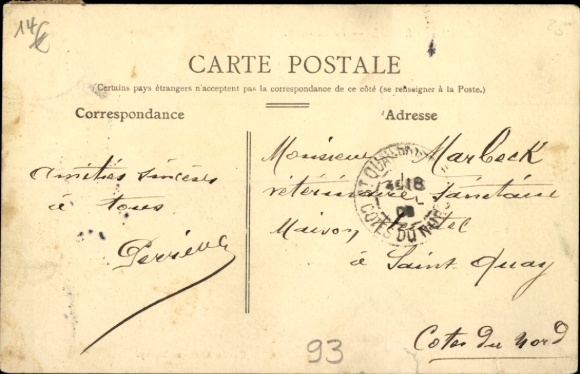 14€
25
CARTE POSTALE
Certains pays étrangers n'acceptent pas la correspondance de ce côté (se renseigner à la Poste.)
Correspondance
Adresse
Amitiés sincères
à tous
Monsieur Marbeck
vétérinaire Sanitaire
Maison
à Saint Quay
Cotes du Nord
ST QUAY
COTES DU NORD
93